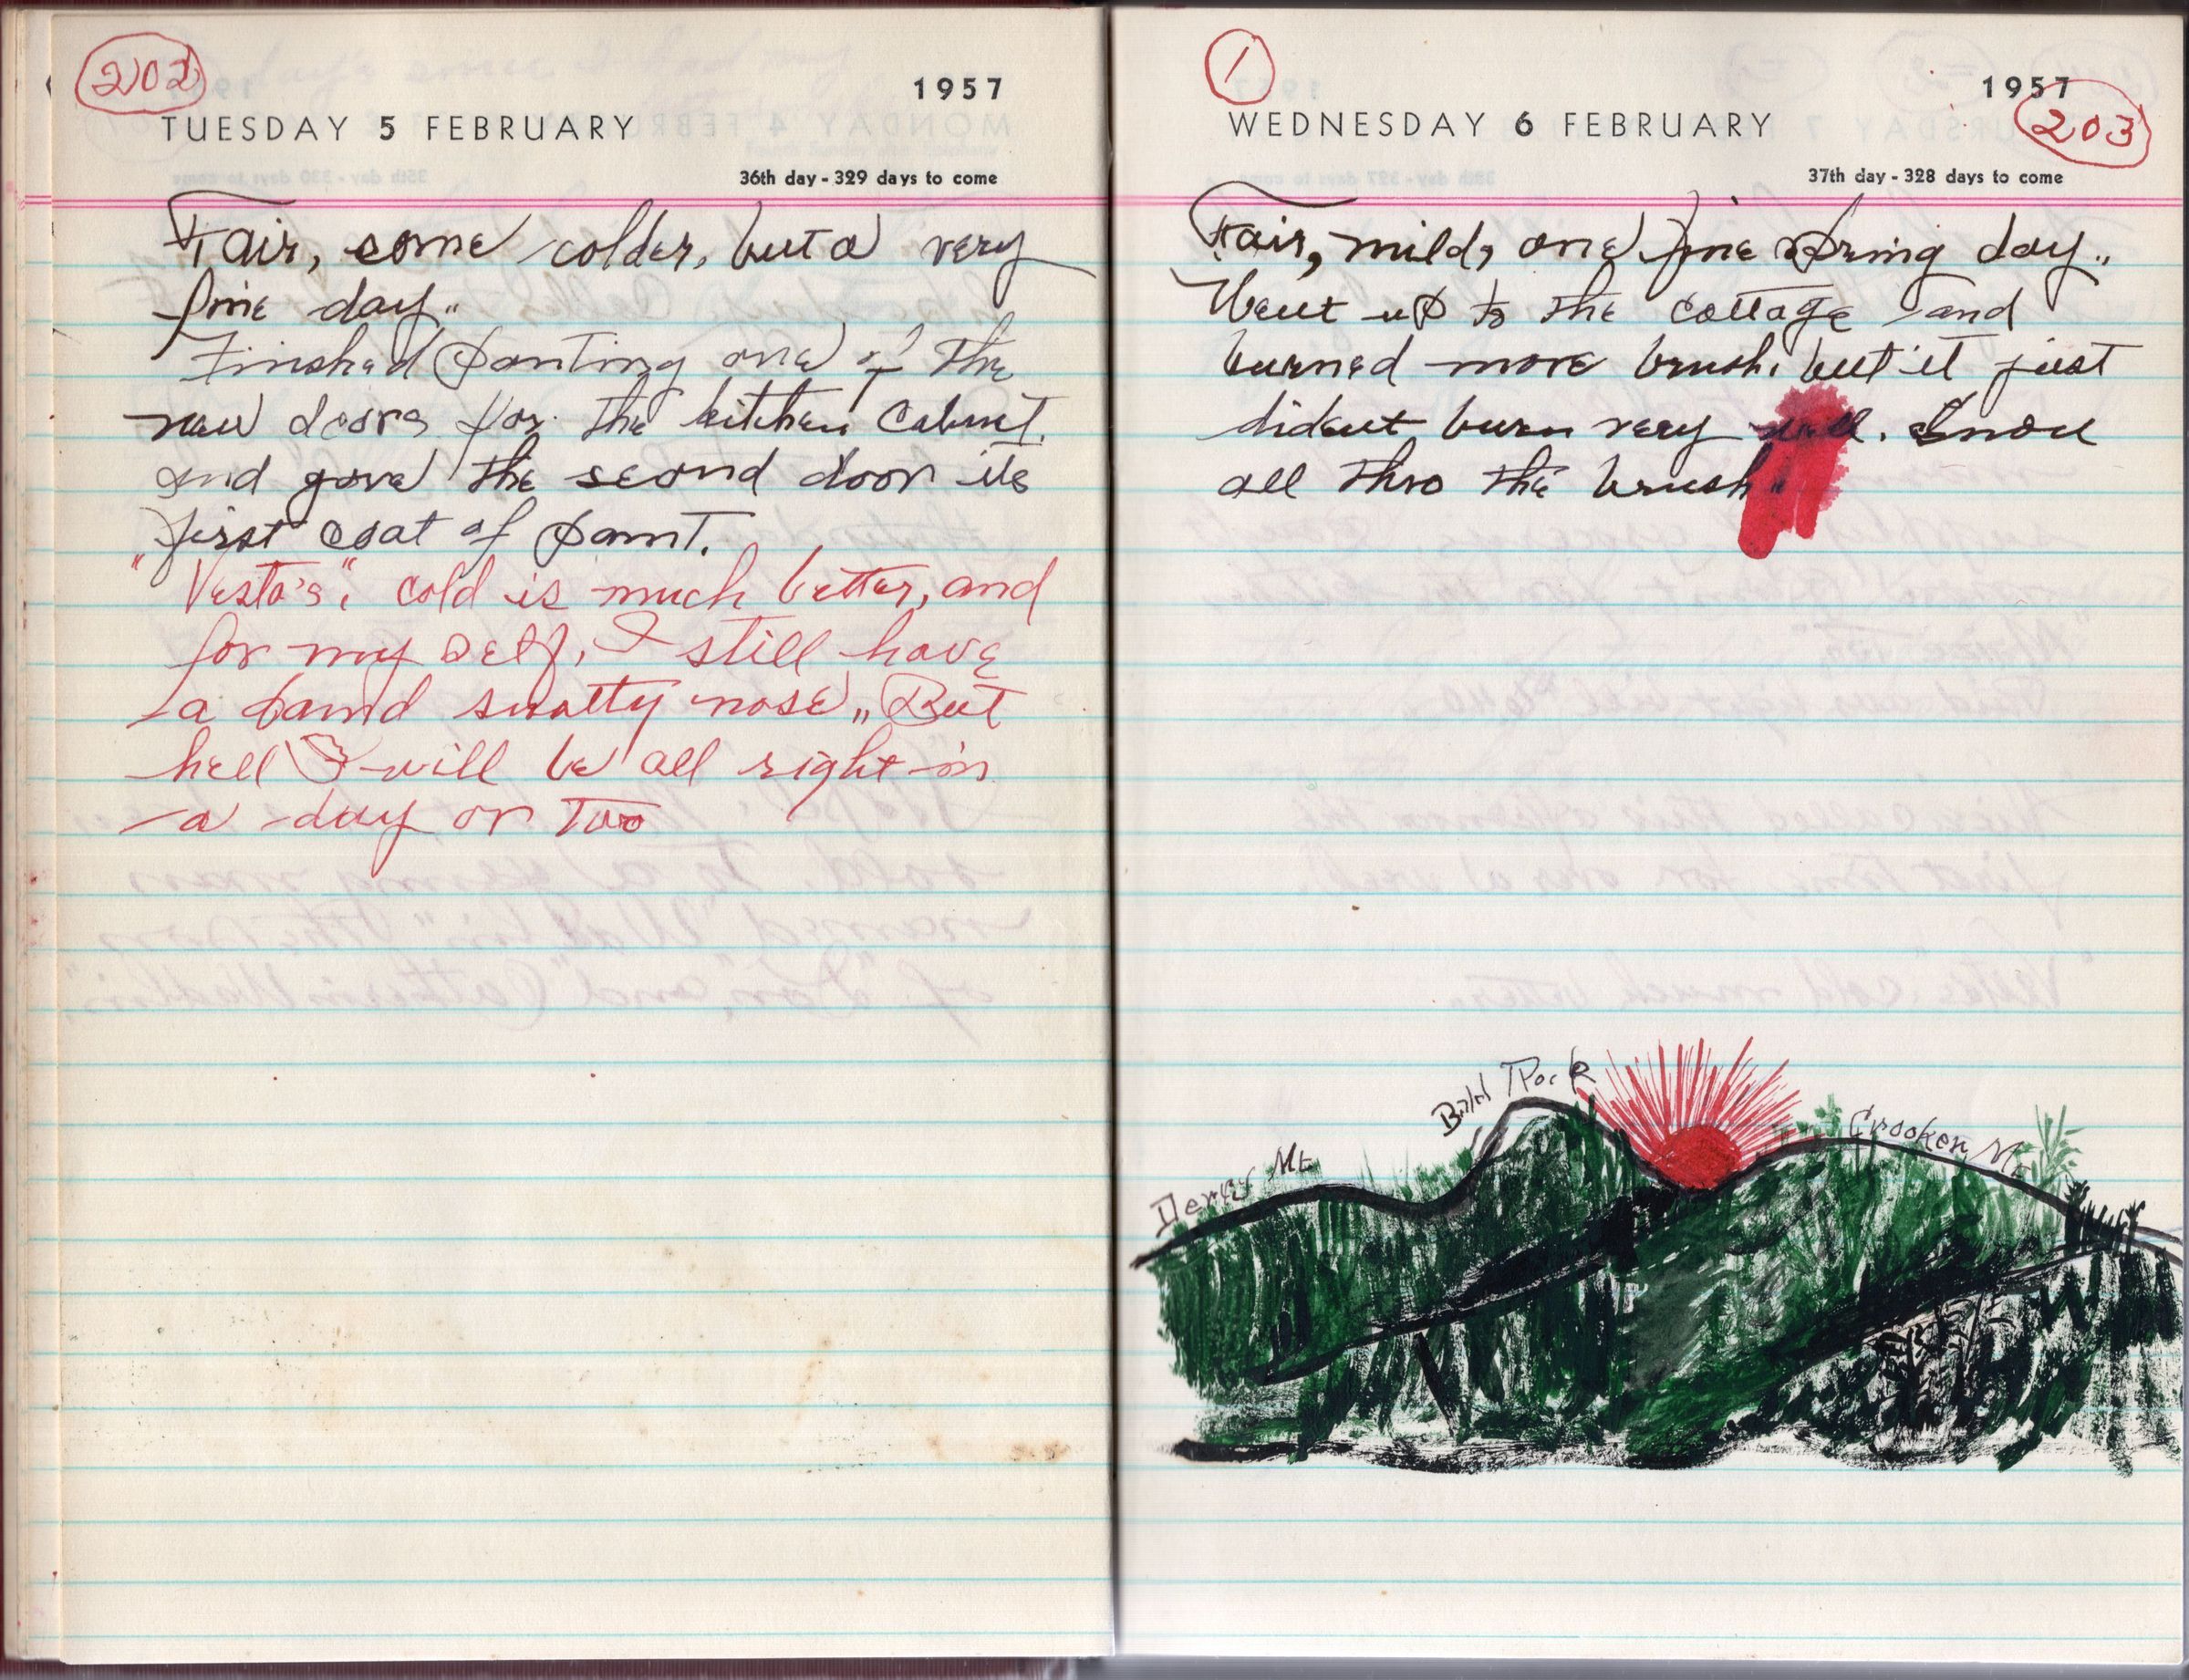 202
1957
TUESDAY 5 FEBRUARY
36th day - 329 days to come
Fair, some colder, but a very
fine day"
Finshed panting one of the
new doors for the kitchen Cabnet,
and gave the second door its
first coat of paint.
"Vesta's", cold is much better, and
for my self, I still have
a damd snotty nose,, But
hell I will be all right in
a day or two
1
1957
WEDNESDAY 6 FEBRUARY
203
37th day - 328 days to come
Fair, mild, one fine spring day,,
Went up to the cottage and
burned more brush, but it just
dident burn very well. Snow
all thro the brush"
Bald Rock
Crooken Mt
Derby Mt